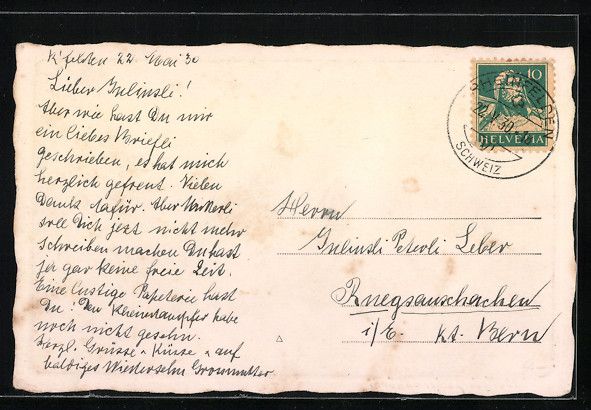 K'felden 22. Mai 30
Lieber Julinsli!
Aber wie hast Du mir
ein liebes Briefli
geschrieben, es hat mich
herzlich gefreut. Vielen
Dank dafür. Aber
soll Dich jetzt nicht mehr
schreiben machen Du hast
ja gar keine freie Zeit.
Eine lustige Papeterie hast
Du. Den habe
noch nicht gesehn.
Herzl. Grüsse & Küsse & auf
baldiges Wiedersehn Grossmutter
10
HELVETIA
SCHWEIZ
Herrn
Julinsli Peterli Leber
Kriegsauschachen
i/E. Kt. Bern